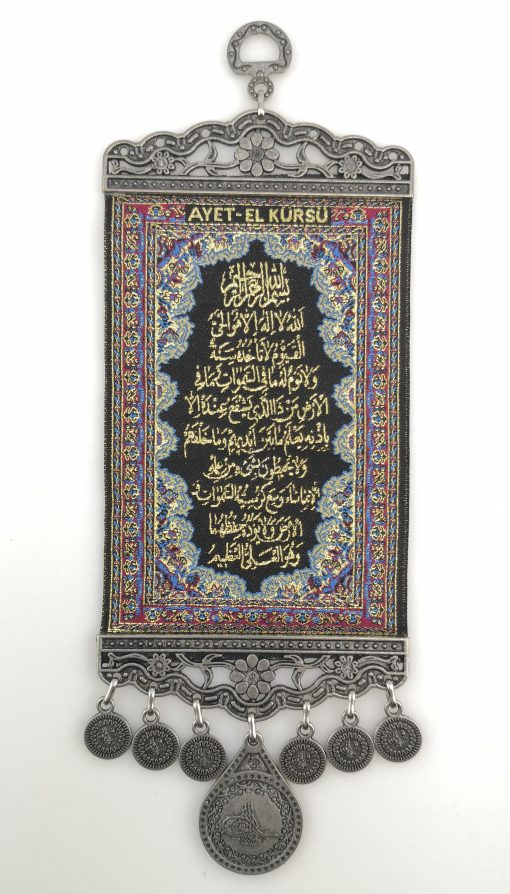 AYET-EL KÜRSÜ
بسم الله الرحمن الرحيم
الله لا اله الا هو الحي
القيوم لا تأخذه سنة
ولا نوم له ما في السموات وما في
الارض من ذا الذي يشفع عنده الا
باذنه يعلم ما بين ايديهم وما خلفهم
ولا يحيطون بشيء من علمه
الا بما شاء وسع كرسيه السموات
والارض ولا يؤده حفظهما
وهو العلي العظيم